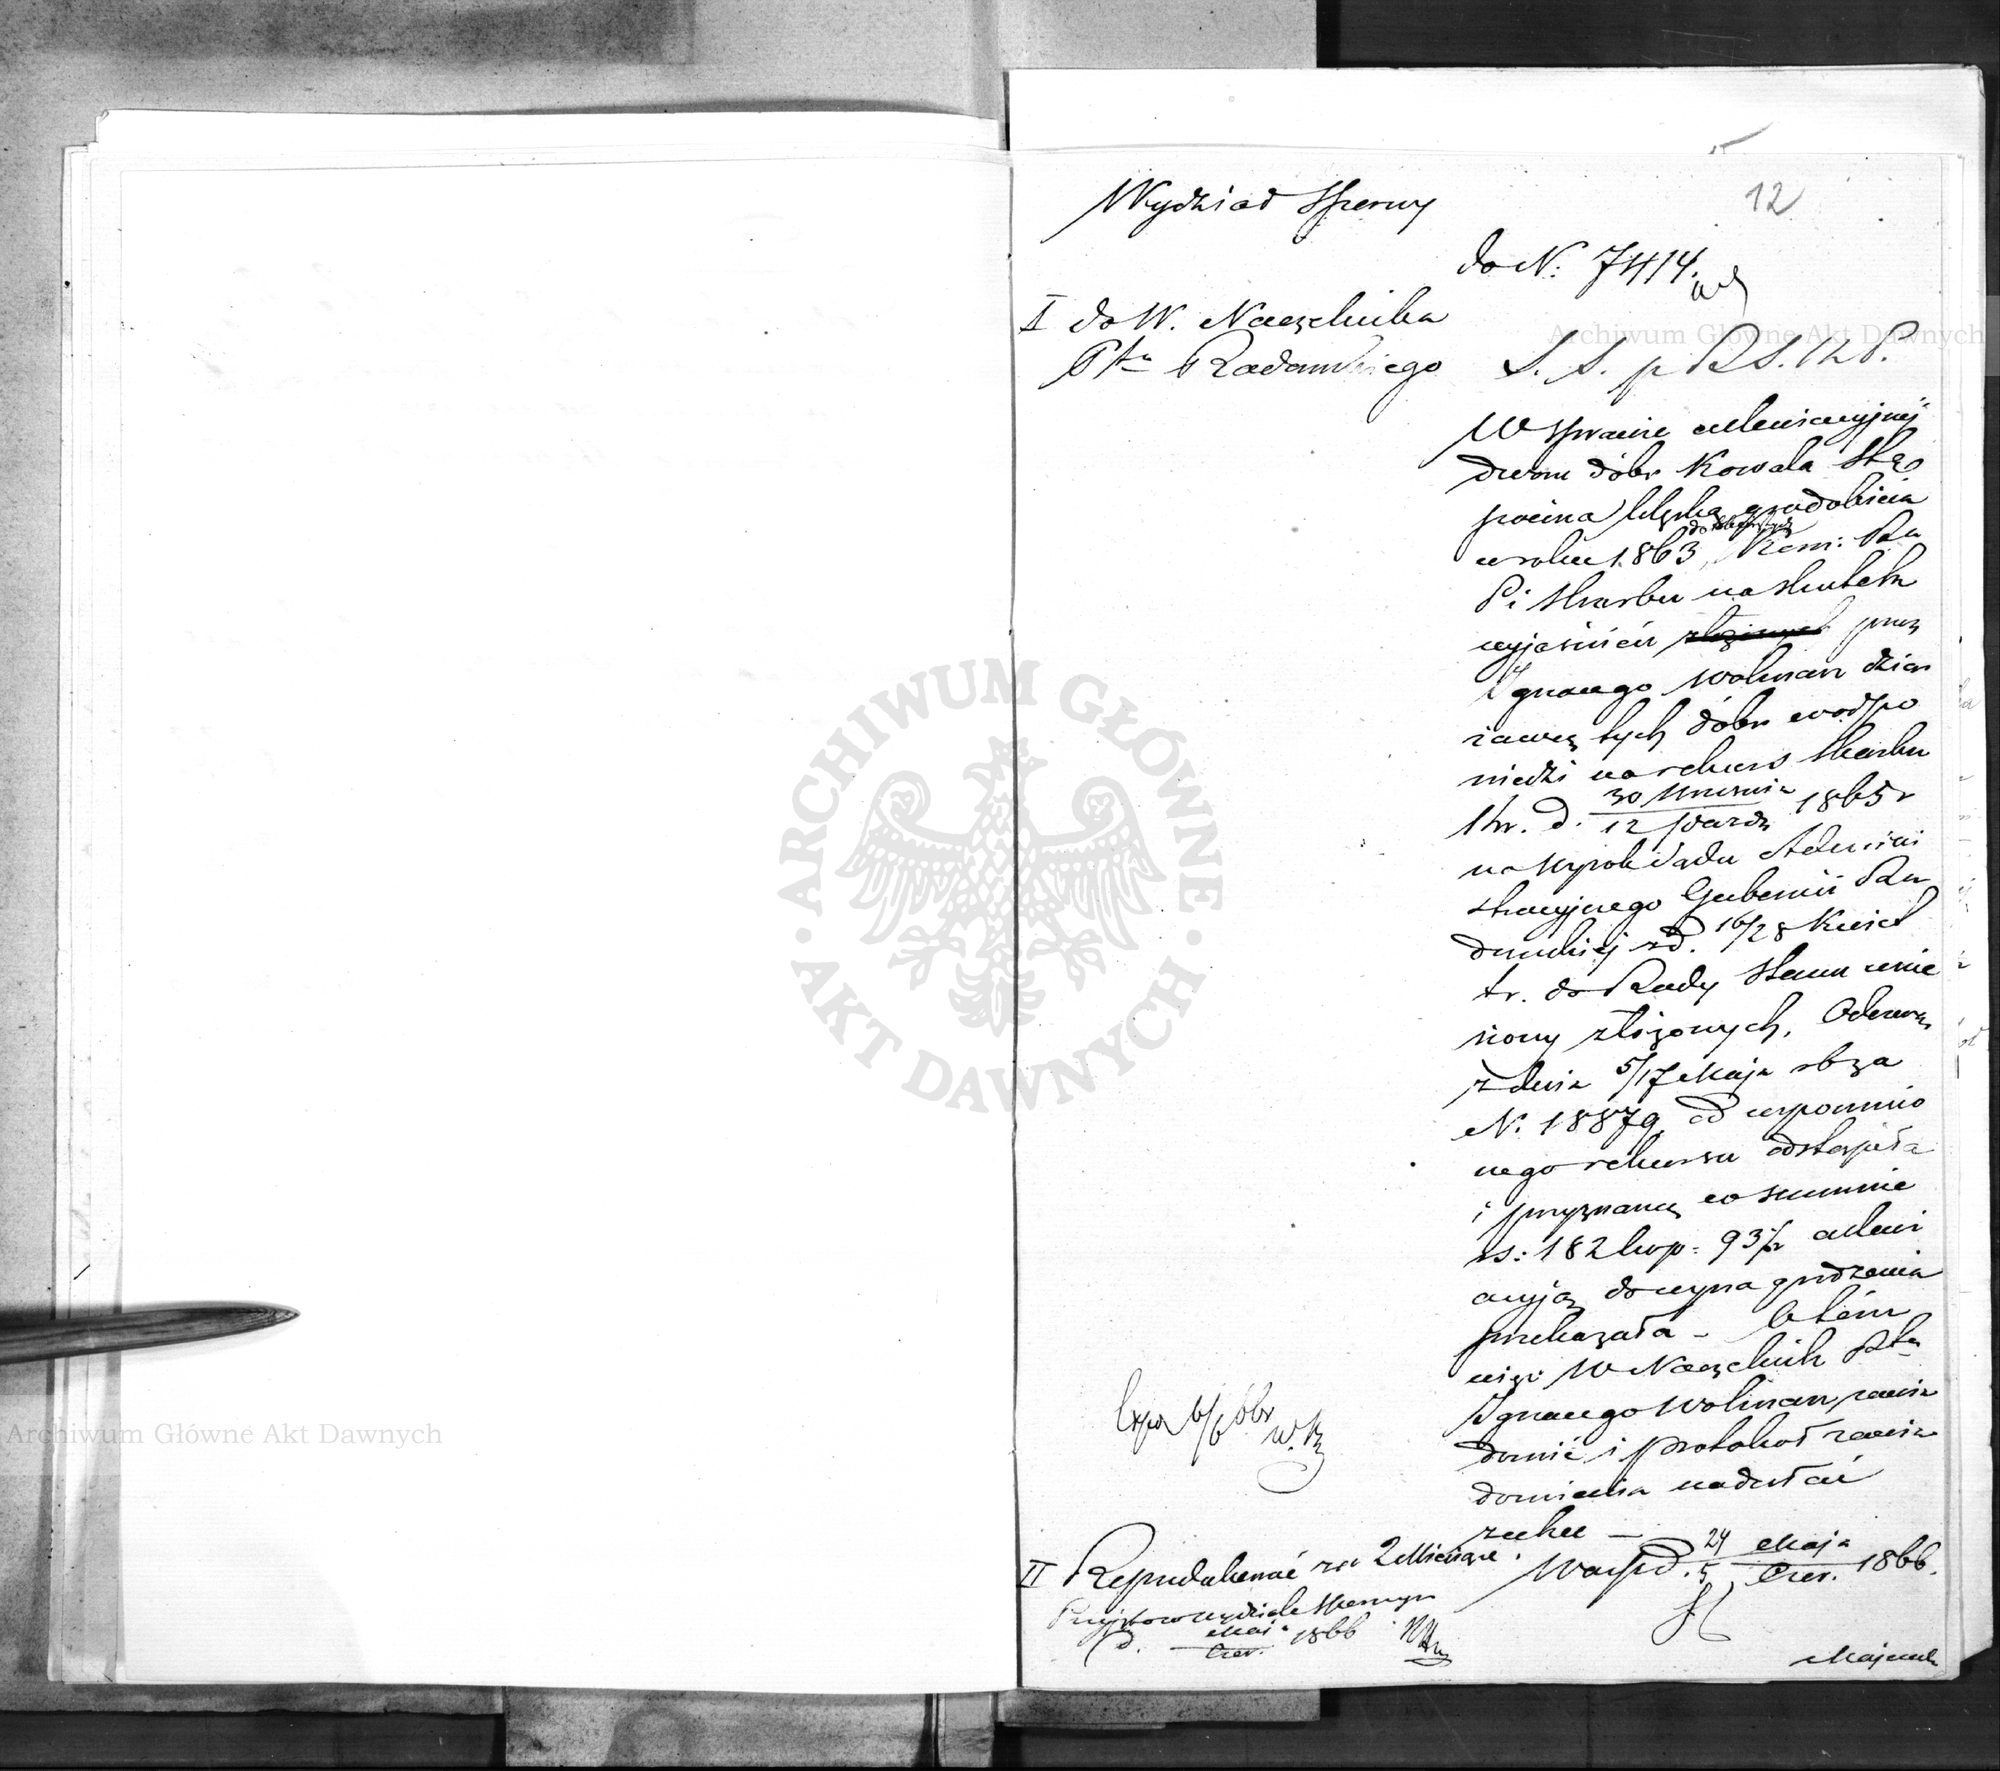 12
Wydział Sporny
do N: 7414.
I do W. Naczelnika
Ptu Radomskiego
S. S. p. R S. K P.
W sprawie allewiacyjnej
dwom dóbr Kowala Stę
pocina klęską gradobicia
w roku 1863, Kom: Rz
P i Skarbu na skutek
wyjaśnień złożonych przez
Ignacego Wolman dzier
żawcę tych dóbr w odpo
wiedzi na rekurs skarbu
Kr. d. 30 Września / 12 Paźdz 1865 r
na wyrok Sądu Admini
stracyjnego Gubernii Ra
domskiej z d. 16/28 Kwiet
t.r. do Rady Stanu wnie
siony złożonych, Odezwą
z dnia 5/17 Maja rb za
N. 18879, od wspomnio
nego rekursu odstąpiła
i przyznaną w summie
rs: 182 kop: 93½ allewi
acyją do wynagrodzenia
przekazała – O tém
więc W Naczelnik Ptu
Ignacego Wolman, zawia
domić i protokół zawia
domienia nadesłać
zechce –
Wars d. 24 Maja / 5 Czer. 1866.
Exp 6/6 66r
W. R
II Reprodukować za 2 Miesiące.
Przyjęto w wydziale Spornym
d. Maja / Czer. 1866
Majewsk
Archiwum Główne Akt Dawnych
Archiwum Główne Akt Dawnych
ARCHIWUM GŁÓWNE · AKT DAWNYCH ·